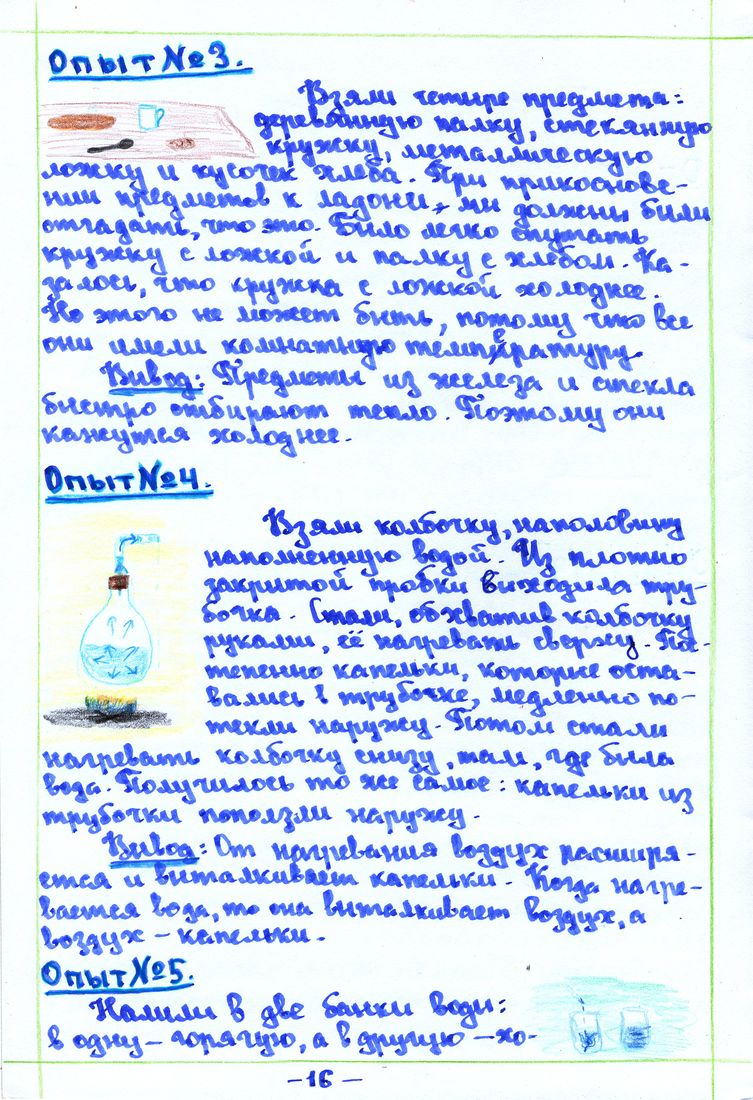 Опыт №3.
Взяли четыре предмета:
деревянную палку, стеклянную
кружку, металлическую
ложку и кусочек хлеба. При прикоснове-
нии предметов к ладони, мы должны были
отгадать, что это. Было легко спутать
кружку с ложкой и палку с хлебом. Ка-
залось, что кружка с ложкой холоднее.
Но этого не может быть, потому что все
они имели комнатную температуру.
Вывод: Предметы из железа и стекла
быстро отбирают тепло. Поэтому они
кажутся холоднее.
Опыт №4.
Взяли колбочку, наполовину
наполненную водой. Из плотно
закрытой пробки выходила тру-
бочка. Стали, обхватив колбочку
руками, её нагревать сверху. По-
тепенно капельки, которые оста-
вались в трубочке, медленно по-
текли наружу. Потом стали
нагревать колбочку снизу, там, где была
вода. Получилось то же самое: капельки из
трубочки поползли наружу.
Вывод: От нагревания воздух расширя-
ется и выталкивает капельки. Когда нагре-
вается вода, то она выталкивает воздух, а
воздух – капельки.
Опыт №5.
Налили в две банки воды:
в одну – горячую, а в другую – хо-
–16–